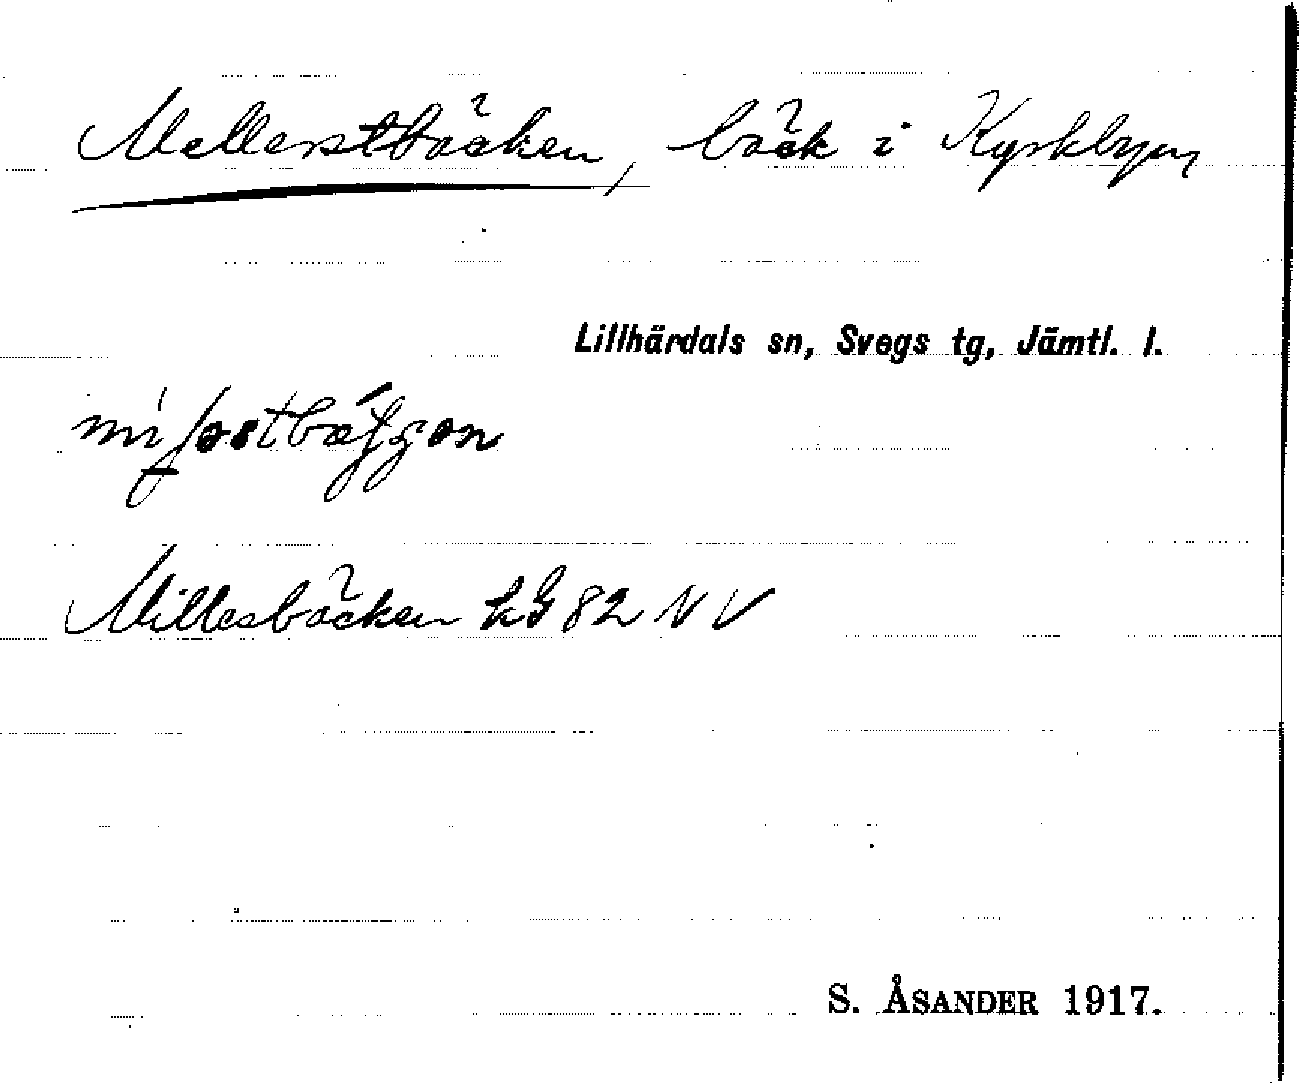 Mellerstbäcken, bäck i Kyrkbyn,
Lillhärdals sn, Svegs tg, Jämtl. l.
Millesbäcken LG 82 NV
S. ÅSANDER 1917.